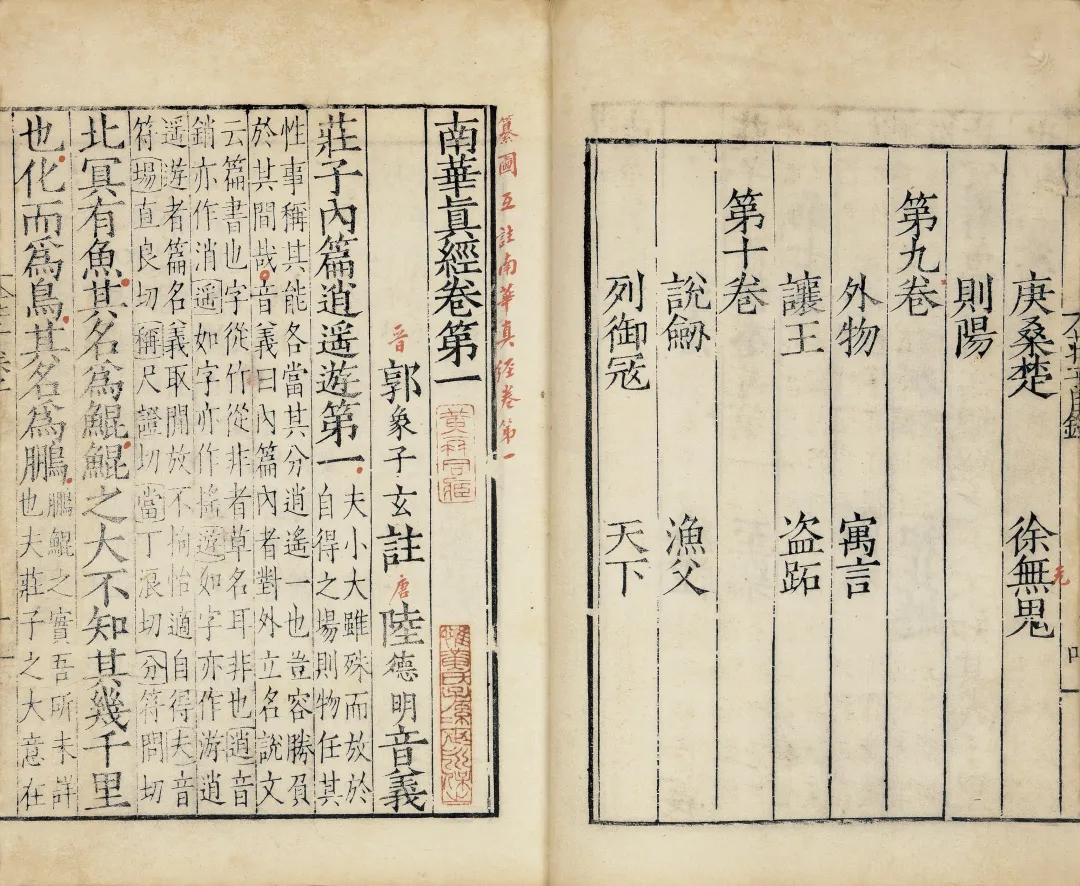 庚桑楚 徐無鬼
元
則陽
第九卷
外物 寓言
讓王 盗跖
第十卷
說劒 漁父
列御冦 天下
纂圖互註南華真经卷第一
南華眞經卷第一
晋郭象子玄註 唐陸德明音義
莊子內篇逍遥遊第一 夫小大雖殊而放於
自得之場則物任其
性事稱其能各當其分逍遥一也豈容勝負
於其間哉音義曰內篇內者對外立名說文
云篇書也字從竹從非者草名耳非也逍音
銷亦作消遥如字亦作搖遊如字亦作游逍
遥遊者篇名義取閒放不拘怡適自得夫音
符場直良切稱尺證切當丁浪切分符問切
北冥有魚其名爲鯤鯤之大不知其幾千里
也化而爲鳥其名爲鵬 鵬鯤之實吾所未詳
也夫莊子之大意在